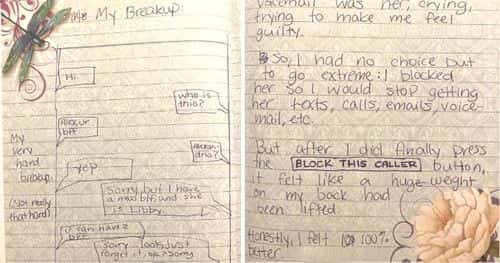 My Breakup:
Hi
who is
this?
your
bff
Alexan-
dria?
yep
Sorry, but I have
a new bff, and she
is Libby.
U can have 2
BFF
sorry... look, just
forget it, ok? sorry
My
very
hard
breakup
(Not really
that hard)
voicemail was her, crying,
trying to make me feel
guilty.
So, I had no choice but
to go extreme: I blocked
her so I would stop getting
her texts, calls, emails, voice-
mail, etc.
But after I did finally press
the BLOCK THIS CALLER button,
it felt like a huge weight
on my back had
been lifted.
Honestly, I felt 100%
better